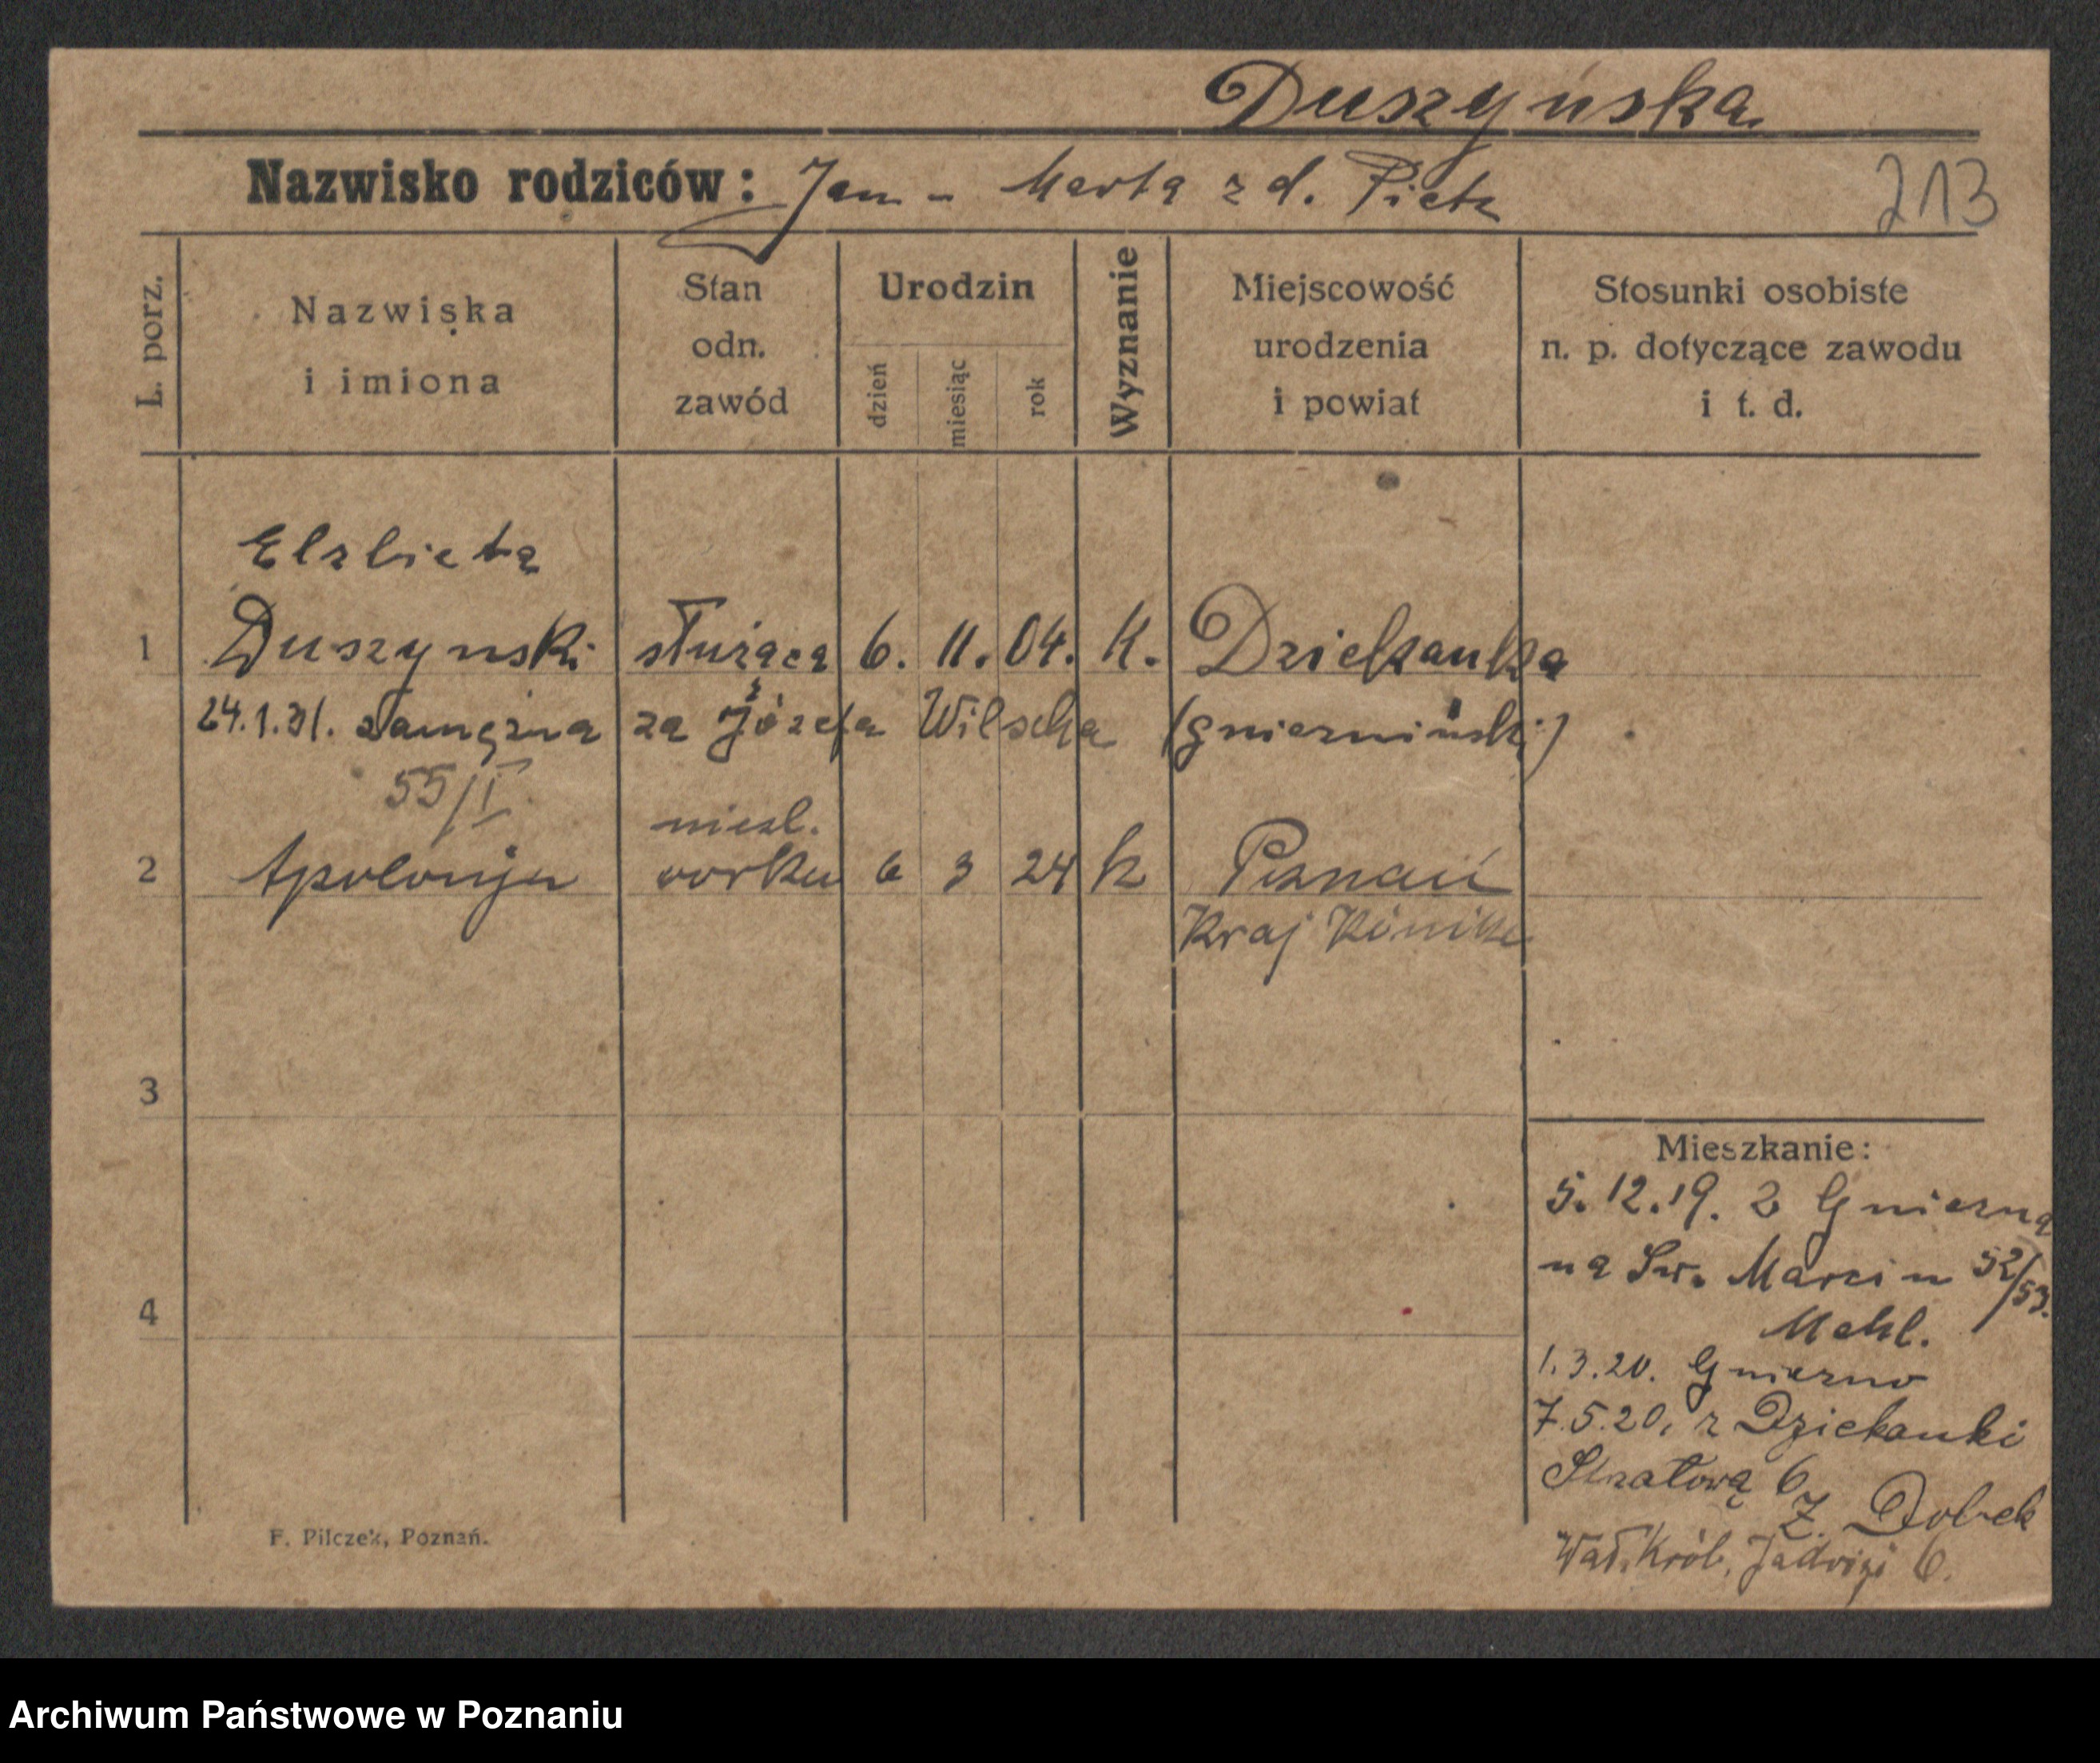 Duszyńska
Nazwisko rodziców: Jan - Marta z d. Pietz
213
L. porz.
Nazwiska
i imiona
Stan
odn.
zawód
Urodzin
dzień
miesiąc
rok
Wyznanie
Miejscowość
urodzenia
i powiat
Stosunki osobiste
n. p. dotyczące zawodu
i t. d.
Elzbieta
1 Duszynski służąca 6. 11. 04. K. Dziekanka
24.1.31. zamężna za Józefa Wilscha (gnieznińsk.)
55/I
niezl.
2 Apolonja córka 6 3 24 k Poznań
Kraj
3
4
Mieszkanie:
5. 12. 19. z Gniezna
na Św. Marcin 52/53.
Mehl.
1. 3. 20. Gniezno
7. 5. 20. z Dziekanki
6
Z. Dobek
Wały Król. Jadwigi 6.
F. Pilczek, Poznań.
Archiwum Państwowe w Poznaniu